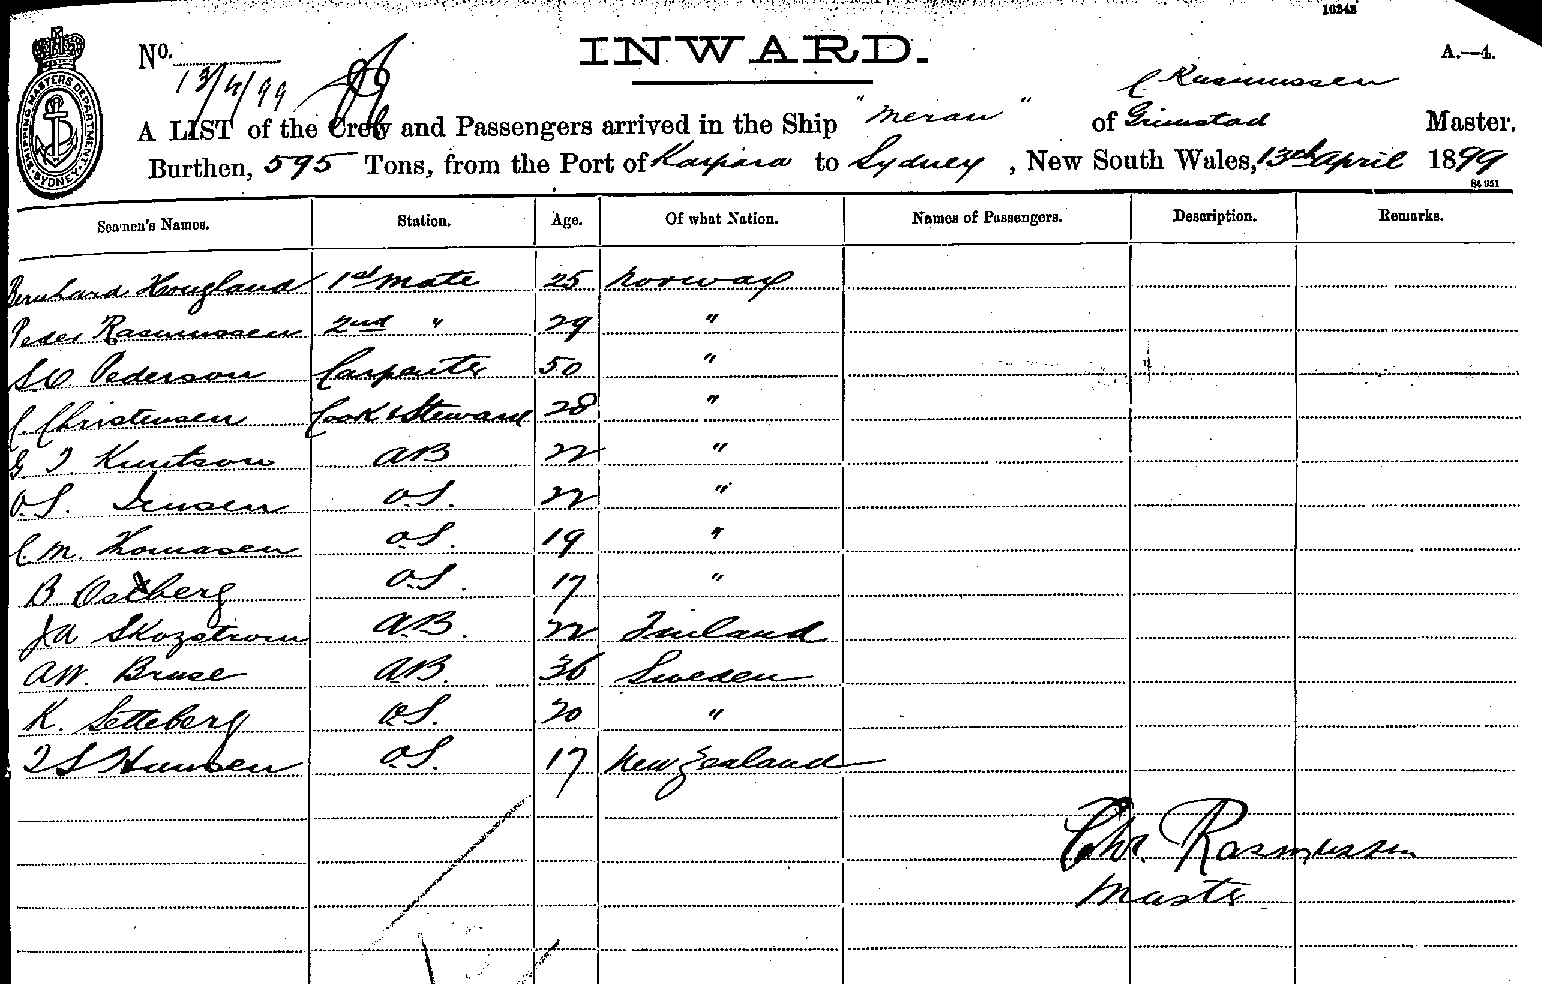 10248
INWARD.
A.—4.
No.
13/4/99
C Rasmussen
A LIST of the Crew and Passengers arrived in the Ship "Meran" of Grimstad Master.
Burthen, 595 Tons, from the Port of Kaipara to Sydney, New South Wales, 13th April 1899
SHIPPING MASTERS DEPARTMENT SYDNEY
Seamen's Names. Station. Age. Of what Nation. Names of Passengers. Description. Remarks.
Bernhard Hougland 1st Mate 25 Norway
Peder Rasmussen 2nd " 29 "
Pederson Carpenter 50 "
C Christensen Cook & Steward 28 "
G T Knutson AB 22 "
O.S. Jensen O.S. 22 "
C M. Thomasen O.S. 19 "
B Ostberg O.S. 17 "
JA Skogstrom A.B. 22 Finland
AW. Bruse A.B. 36 Sweden
K. Setteberg O.S. 20 "
T S Hansen O.S. 17 New Zealand
Chr. Rasmussen
Master